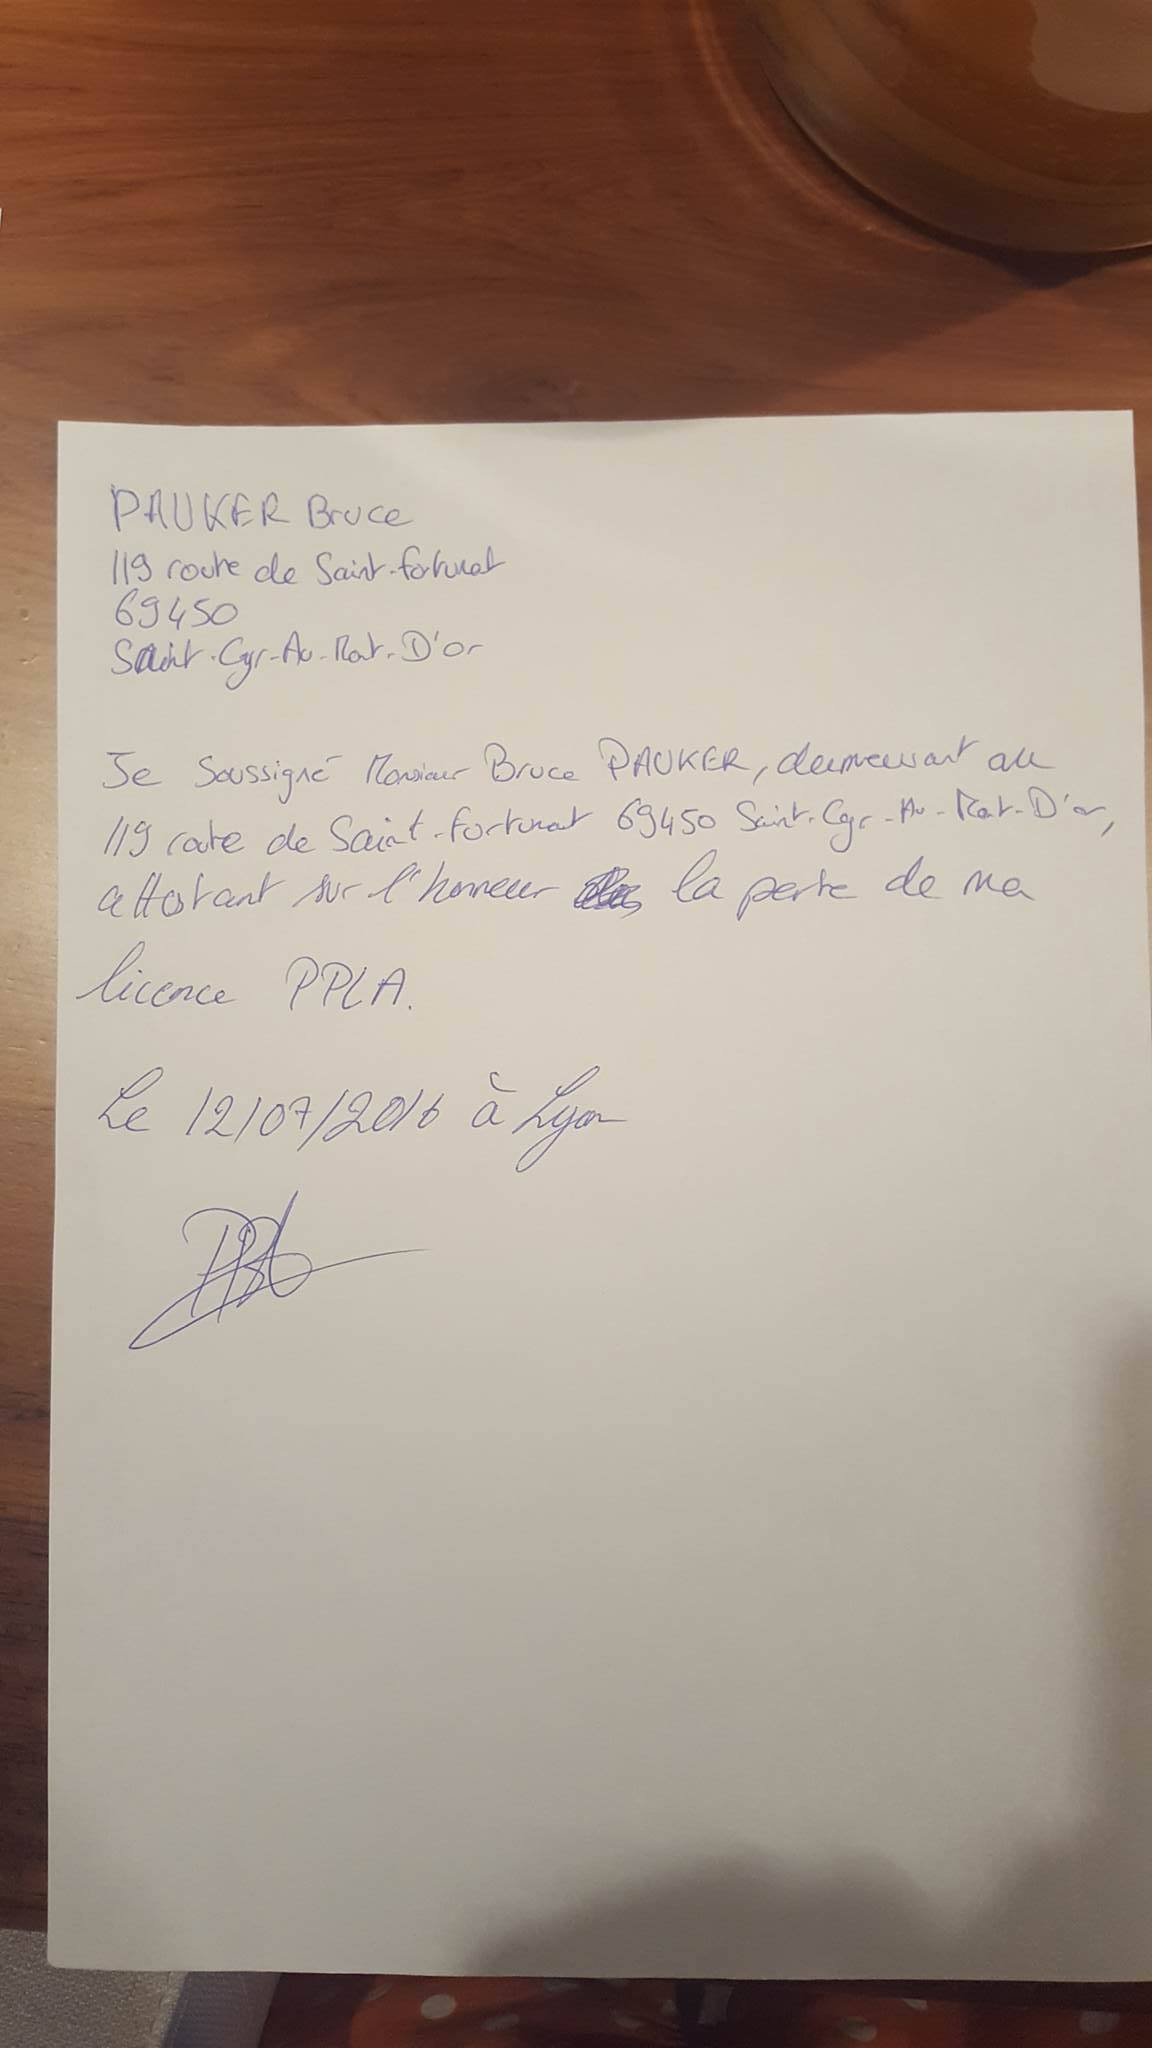 PAUKER Bruce
119 route de Saint-Fortunat
69450
Saint-Cyr-Au-Mont-D'or
Je soussigné Monsieur Bruce PAUKER, demeurant au
119 route de Saint-Fortunat 69450 Saint-Cyr-Au-Mont-D'or,
attestant sur l'honneur la perte de ma
licence PPLA.
Le 12/07/2016 à Lyon